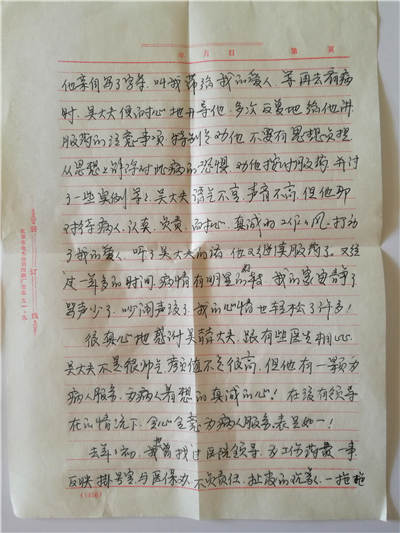 年 月 日 第 页
他亲自写了字条，叫我带给我的爱人，等再去看病
时，吴大夫很耐心地开导他，多次反复地给他讲
服药的注意事项，特别是劝他不要有思想负担
从思想上解除对此病的恐惧，劝他按时服药，并讲
了一些实例等。吴大夫语气不高，声音不高，但他那
对待病人，认真，负责，耐心，真诚的工作作风，打动
了我的爱人，听了吴大夫的话，他又继续服药了。又经
过一年多的时间，病情有明显的好转，我的家安静了
骂声少了，吵闹声没了，我的心情也轻松了许多！
很真心地感谢吴大夫，跟有些医生相比，
吴大夫不是很帅气，颜值不是很高，但他有一颗为
病人服务，为病人着想的真诚的心！在没有领导
在的情况下，全心全意为病人服务，表里如一！
去年初，我曾找过医院领导，为工作药费一事
反映挂号室与医保办，不负责任，扯皮的现象，一拖